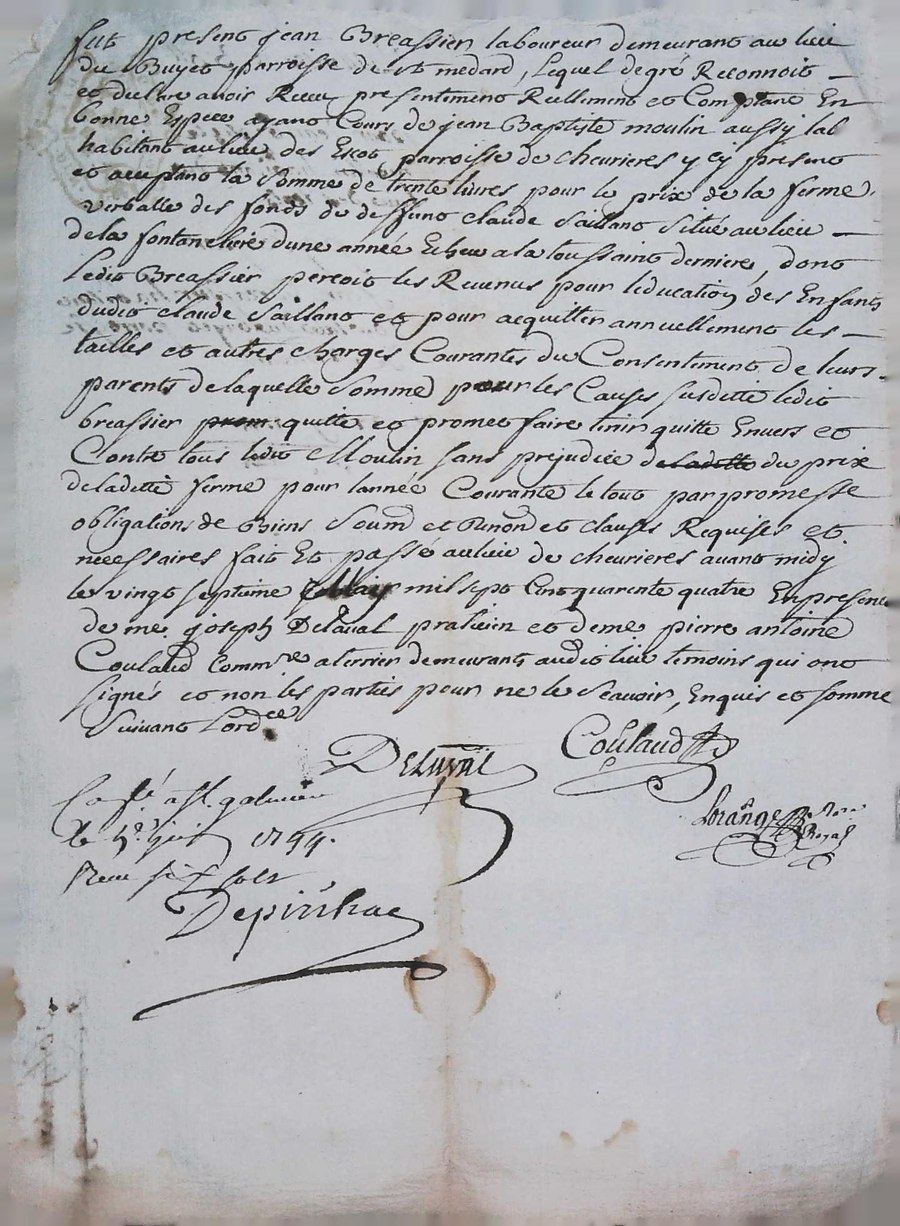 fut present jean Breassier laboureur demeurant au lieu
du Buyet parroisse de st medard, lequel de gré Reconnoit
et declare avoir Receu presentement Reellement et Comptant En
bonne Espece ayant Cours de jean Baptiste moulin aussy lab
habitant au lieu des Escot parroisse de cheurieres y cy present
et acceptant la somme de trente livres pour le prix de la ferme
verballe des fonds de deffunt claude Saillant situé au lieu
de la fontaneliere dune année Echeu a la toussaint derniere, dont
ledit Breassier perçoit les Revenus pour leducation des Enfants
dudit claude Saillant et pour acquitter annuellement les
tailles et autres charges Courantes du Consentement de leurs
parents de laquelle somme pour les Causes susditte ledit
breassier prom quitte et promet faire tenir quitte Envers et
Contre tous ledit Moulin sans prejudice de ladette du prix
de laditte ferme pour lannée Courante le tout par promesse
obligations de Biens Soumd et Renond et clauses Requises et
necessaires fait Et passé au lieu de cheurieres avant midy
le vingt septieme May mil sept Cent quarente quatre En presence
de me joseph Delaval praticien et de me pierre antoine
Coulaud Commre a terrier demeurants audit lieu temoins qui ont
signés et non les parties pour ne le scavoir, Enquis et somme
suivant lordce
Delaval Coulaud
Lorange No Royal
Con^lé a St galmier
le juin 1744.
Receu six sols
Depinhac